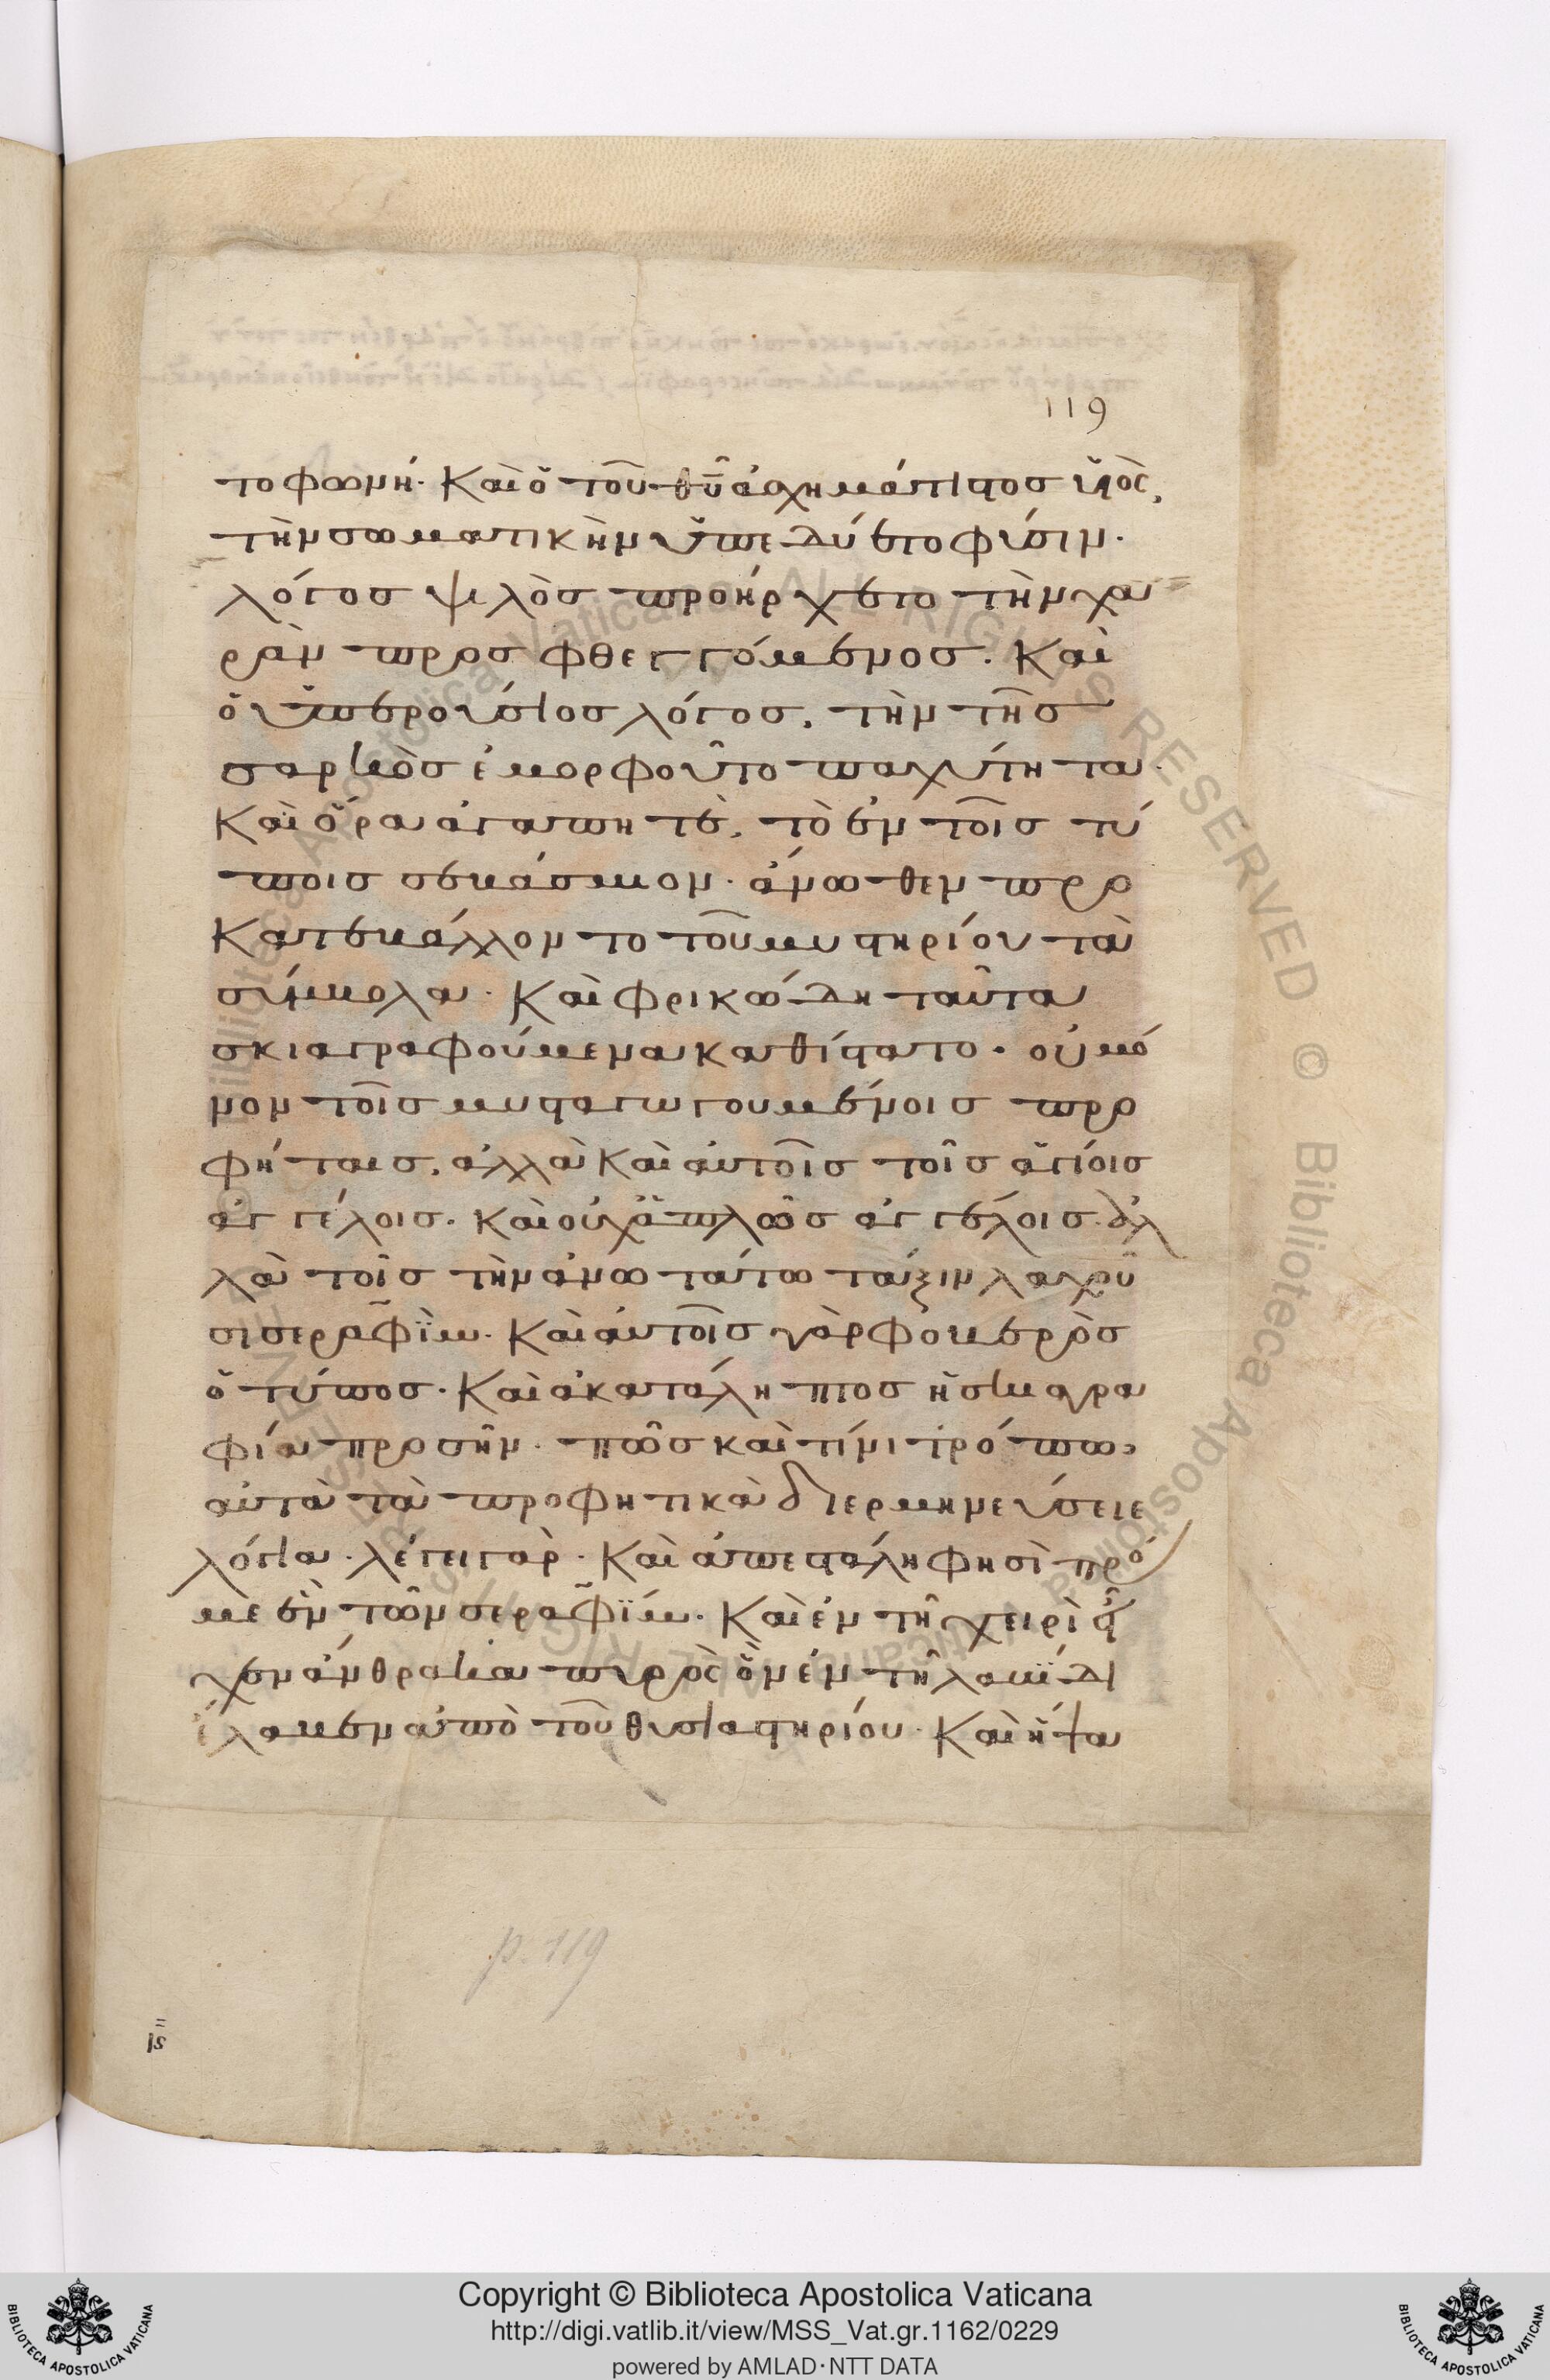 119
το φωνή· Καὶ ὁ τοῦ θῦ ἀσχημάτιστος υἱὸς,
τὴν σωματικὴν ὑπεδύετο φύσιν·
λόγος ψιλὸς προήρχετο τὴν χα
ρὰν προσφθεγγόμενος. Καὶ
ὁ ὑπερούσιος λόγος, τὴν τῆς
σαρκὸς ἐμορφοῦτο παχύτητα·
Καὶ ὅρα ἀγαπητὲ, τὸ ἐν τοῖς τύ
ποις σεβάσμιον· ἄνωθεν προ
κατεβάλλοντο τοῦ μυστηρίου τὰ
σύμβολα· Καὶ φρικώδη ταῦτα
σκιαγραφούμενα καθίστατο· οὐ μό
νον τοῖς μυσταγωγουμένοις προ
φήταις, ἀλλὰ Καὶ αὐτοῖς τοῖς ἁγίοις
ἀγγέλοις· Καὶ οὐχ ἁπλῶς ἀγγέλοις· ἀλ
λὰ τοῖς τὴν ἀνωτάτω τάξιν λαχοῦ
σι σεραφὶμ· Καὶ αὐτοῖς γὰρ φοβερὸς
ὁ τύπος· Καὶ ἀκατάληπτος ἡ σκιαγρα
φία προσῆν· πῶς καὶ τίνι τρόπω
αὐτὰ τὰ προφητικὰ διερμηνεύσειε
λόγια· λέγει γὰρ· Καὶ ἀπεστάλη φησὶ πρό
με ἓν τῶν σεραφὶμ· Καὶ ἐν τῆ χειρὶ εἶ
χεν ἄνθρακα πυρὸς ὃν ἐν τῆ λαβίδι
ἔλαβεν ἀπὸ τοῦ θυσιαστηρίου· Καὶ ἥψα
p. 119
Copyright © Biblioteca Apostolica Vaticana
http://digi.vatlib.it/view/MSS_Vat.gr.1162/0229
powered by AMLAD·NTT DATA
BIBLIOTECA APOSTOLICA VATICANA
BIBLIOTECA APOSTOLICA VATICANA